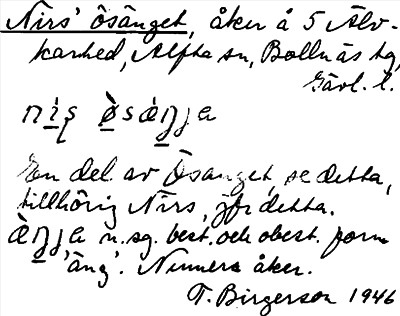 Nirs' Ôsänget, åker å 5 Älv-
karhed, Alfta sn, Bollnäs tg,
Gävl. l.
En del av Ôsänget, se detta,
tillhörig Nirs, jfr detta.
n. sg. best. och obest. form
'äng'. Numera åker.
T. Birgerson 1946